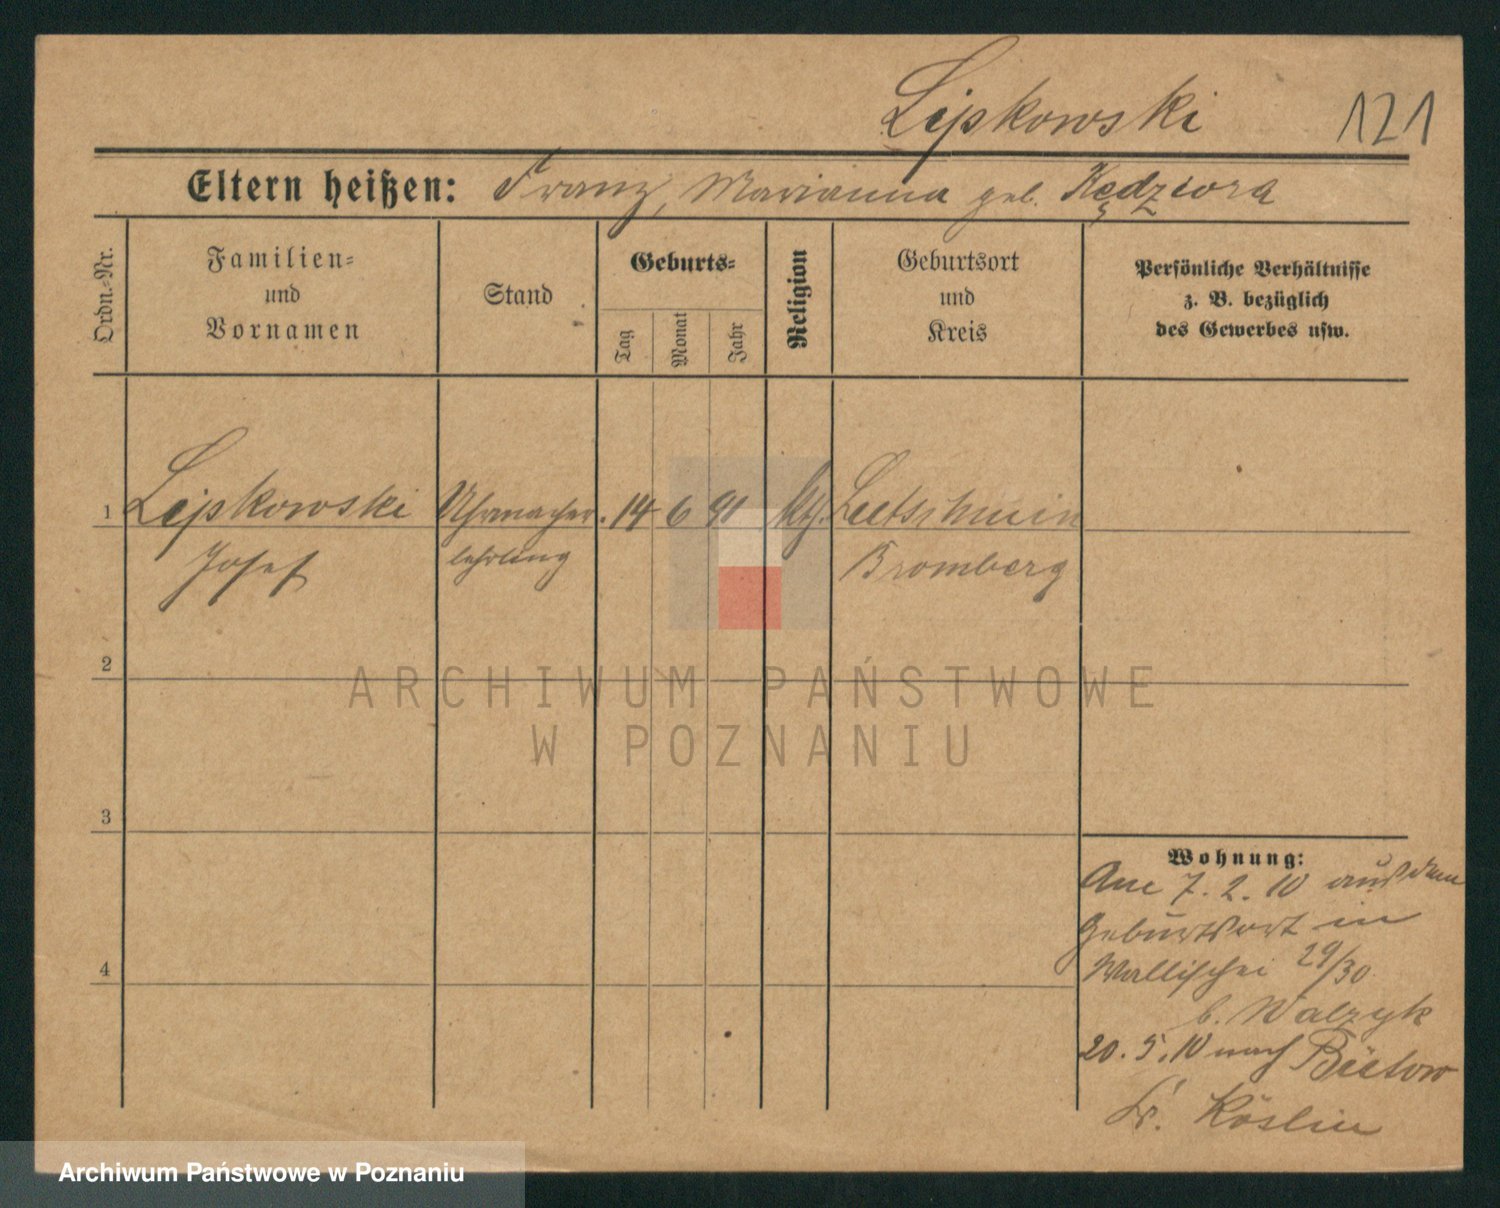 Lipkowski
121
Eltern heißen: Franz, Marianna geb. Kędziora
Ordn.-Nr.
Familien-
und
Vornamen
Stand
Geburts-
Tag
Monat
Jahr
Religion
Geburtsort
und
Kreis
Persönliche Verhältnisse
z. B. bezüglich
des Gewerbes usw.
1 Lipkowski Uhrmacher 14 6 91 kth.
Josef lehrling Bromberg
2
3
4
Wohnung:
Am 7. 2. 10 aus dem
Geburtsort in
Wallischei 29/30
b. Walzyk
20. 5. 10 nach
Kr. Köslin
ARCHIWUM PAŃSTWOWE
W POZNANIU
Archiwum Państwowe w Poznaniu